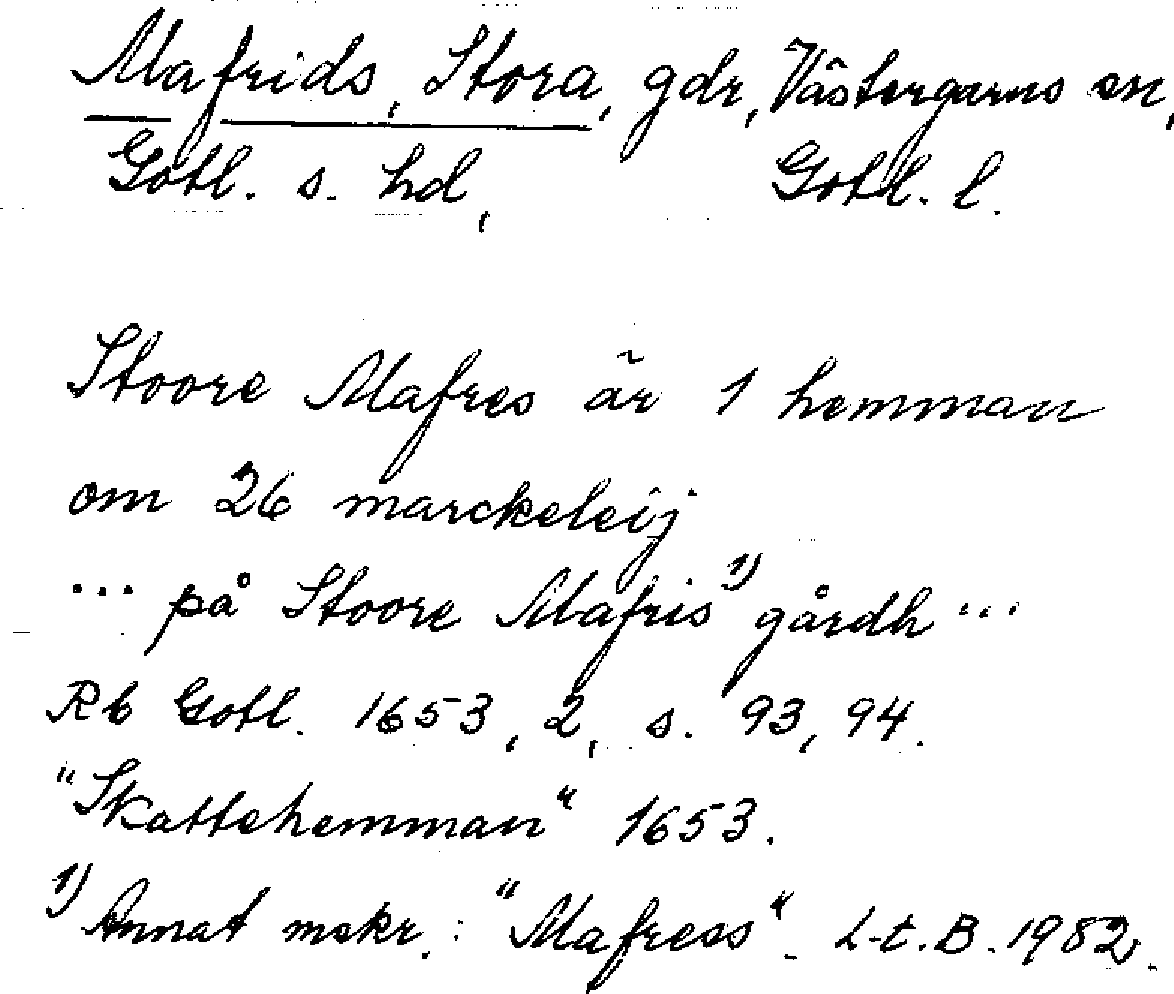 Mafrids, Stora, gdr, Västergarns sn,
Gotl. s. hd, Gotl. l.
Stoore Mafres är 1 hemman
om 26 marckeleij
... på Stoore Mafris 1) gårdh ...
Rb Gotl. 1653, 2, s. 93, 94.
"Skattehemman" 1653.
1) Annat mskr.: "Mafress". L-t. B. 1982.